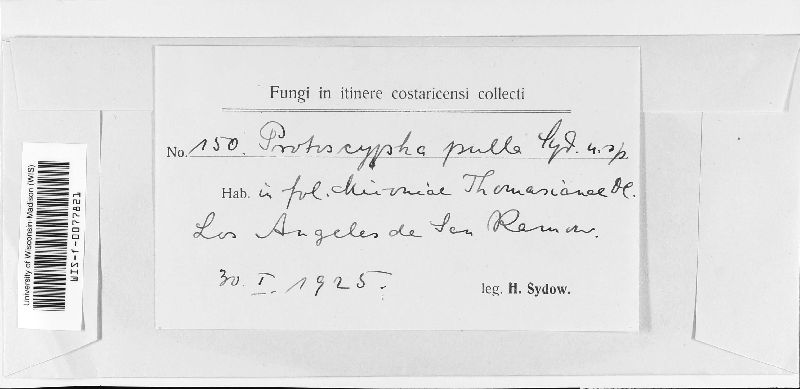 Fungi in itinere costaricensi collecti
No. 150. Protoscypha pulla Syd. n. sp.
Hab. in fol. Miconiae Thomasianae DC.
Los Angeles de San Ramon.
30. I. 1925.
leg. H. Sydow.
University of Wisconsin-Madison (WIS)
WIS-f-0077821